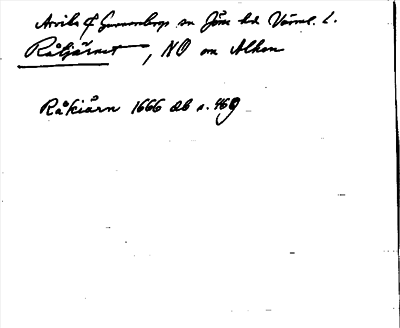 Arvika o Gunnarskogs sn Jösse hd Värml. l.
Råtjärnet, NO om Alken
Råkiärn 1666 Db s. 469